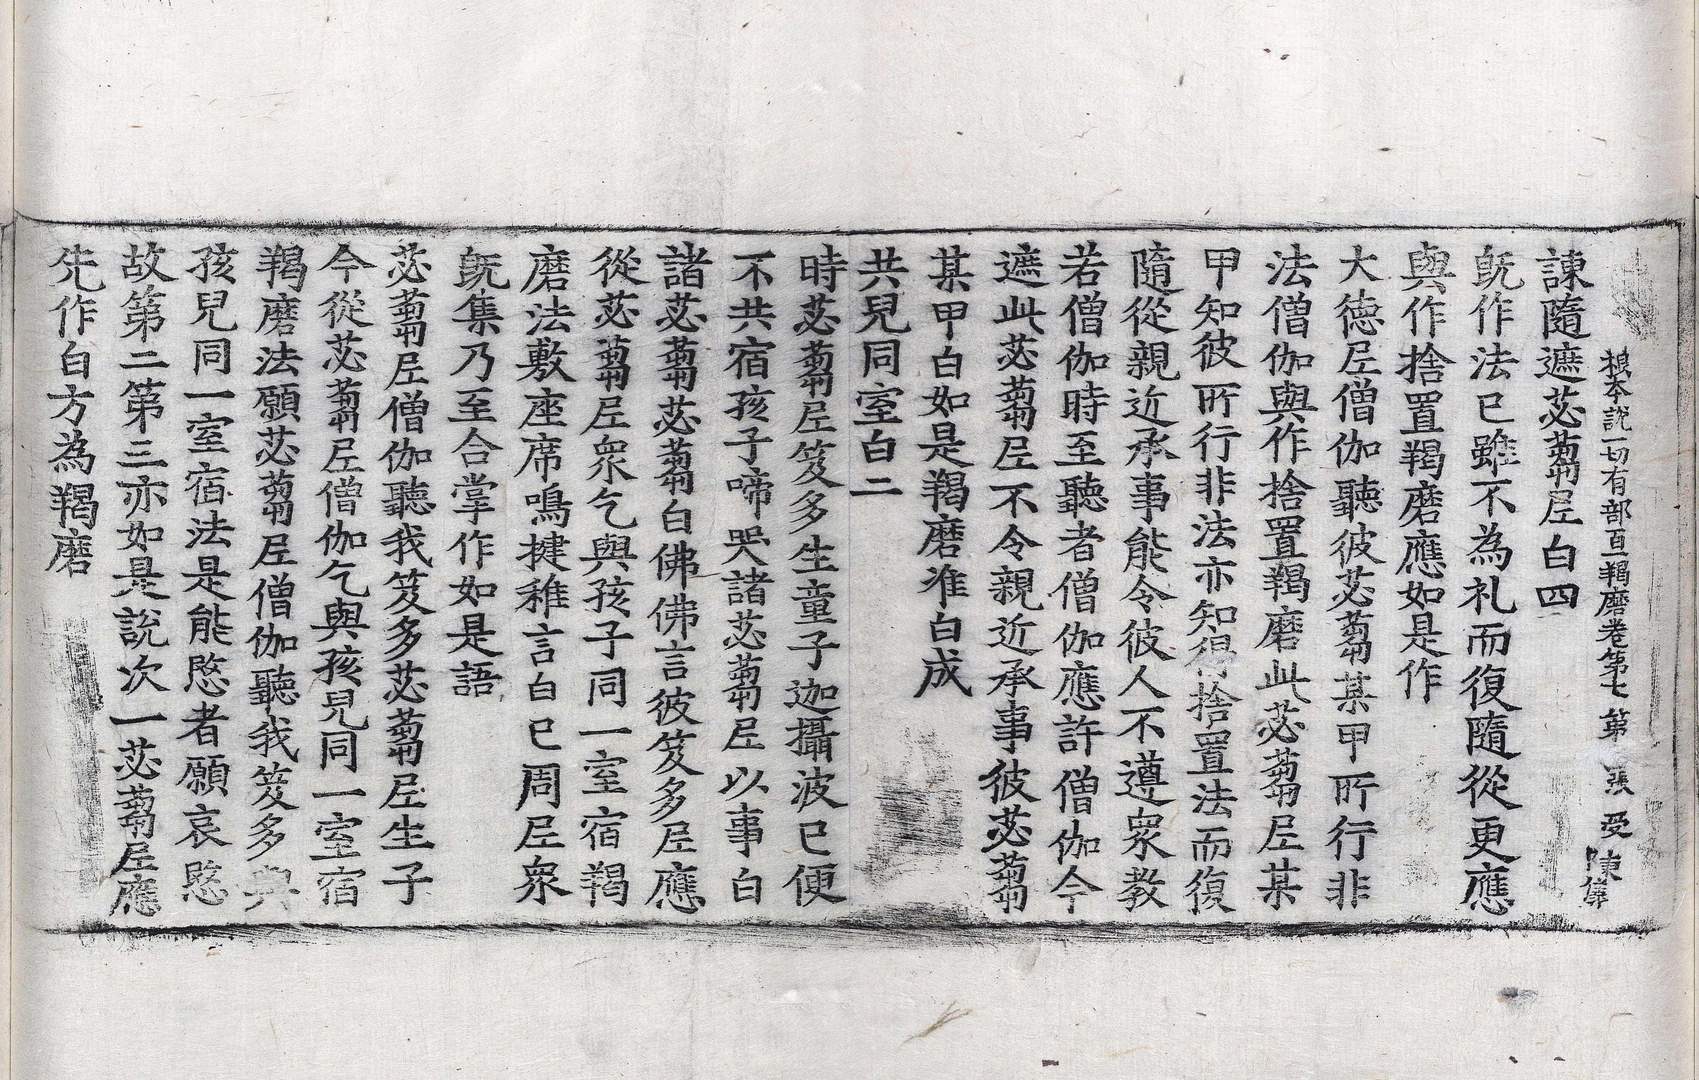 根本說一切有部百一羯磨卷第七 第 張 受
陳
諫隨遮苾蒭尼白四
既作法已雖不為礼而復隨從更應
與作捨置羯磨應如是作
大德尼僧伽聽彼苾蒭某甲所行非
法僧伽與作捨置羯磨此苾蒭尼某
甲知彼所行非法亦知得捨置法而復
隨從親近承事能令彼人不遵眾教
若僧伽時至聽者僧伽應許僧伽今
遮此苾蒭尼不令親近承事彼苾蒭
某甲白如是羯磨准白成
共兒同室白二
時苾蒭尼笈多生童子迦攝波已便
不共宿孩子啼哭諸苾蒭尼以事白
諸苾蒭苾蒭白佛佛言彼笈多尼應
從苾蒭尼眾乞與孩子同一室宿羯
磨法敷座席鳴揵稚言白已周尼眾
既集乃至合掌作如是語
苾蒭尼僧伽聽我笈多苾蒭尼生子
今從苾蒭尼僧伽乞與孩兒同一室宿
羯磨法願苾蒭尼僧伽聽我笈多與
孩兒同一室宿法是能愍者願哀愍
故第二第三亦如是說次一苾蒭尼應
先作白方為羯磨